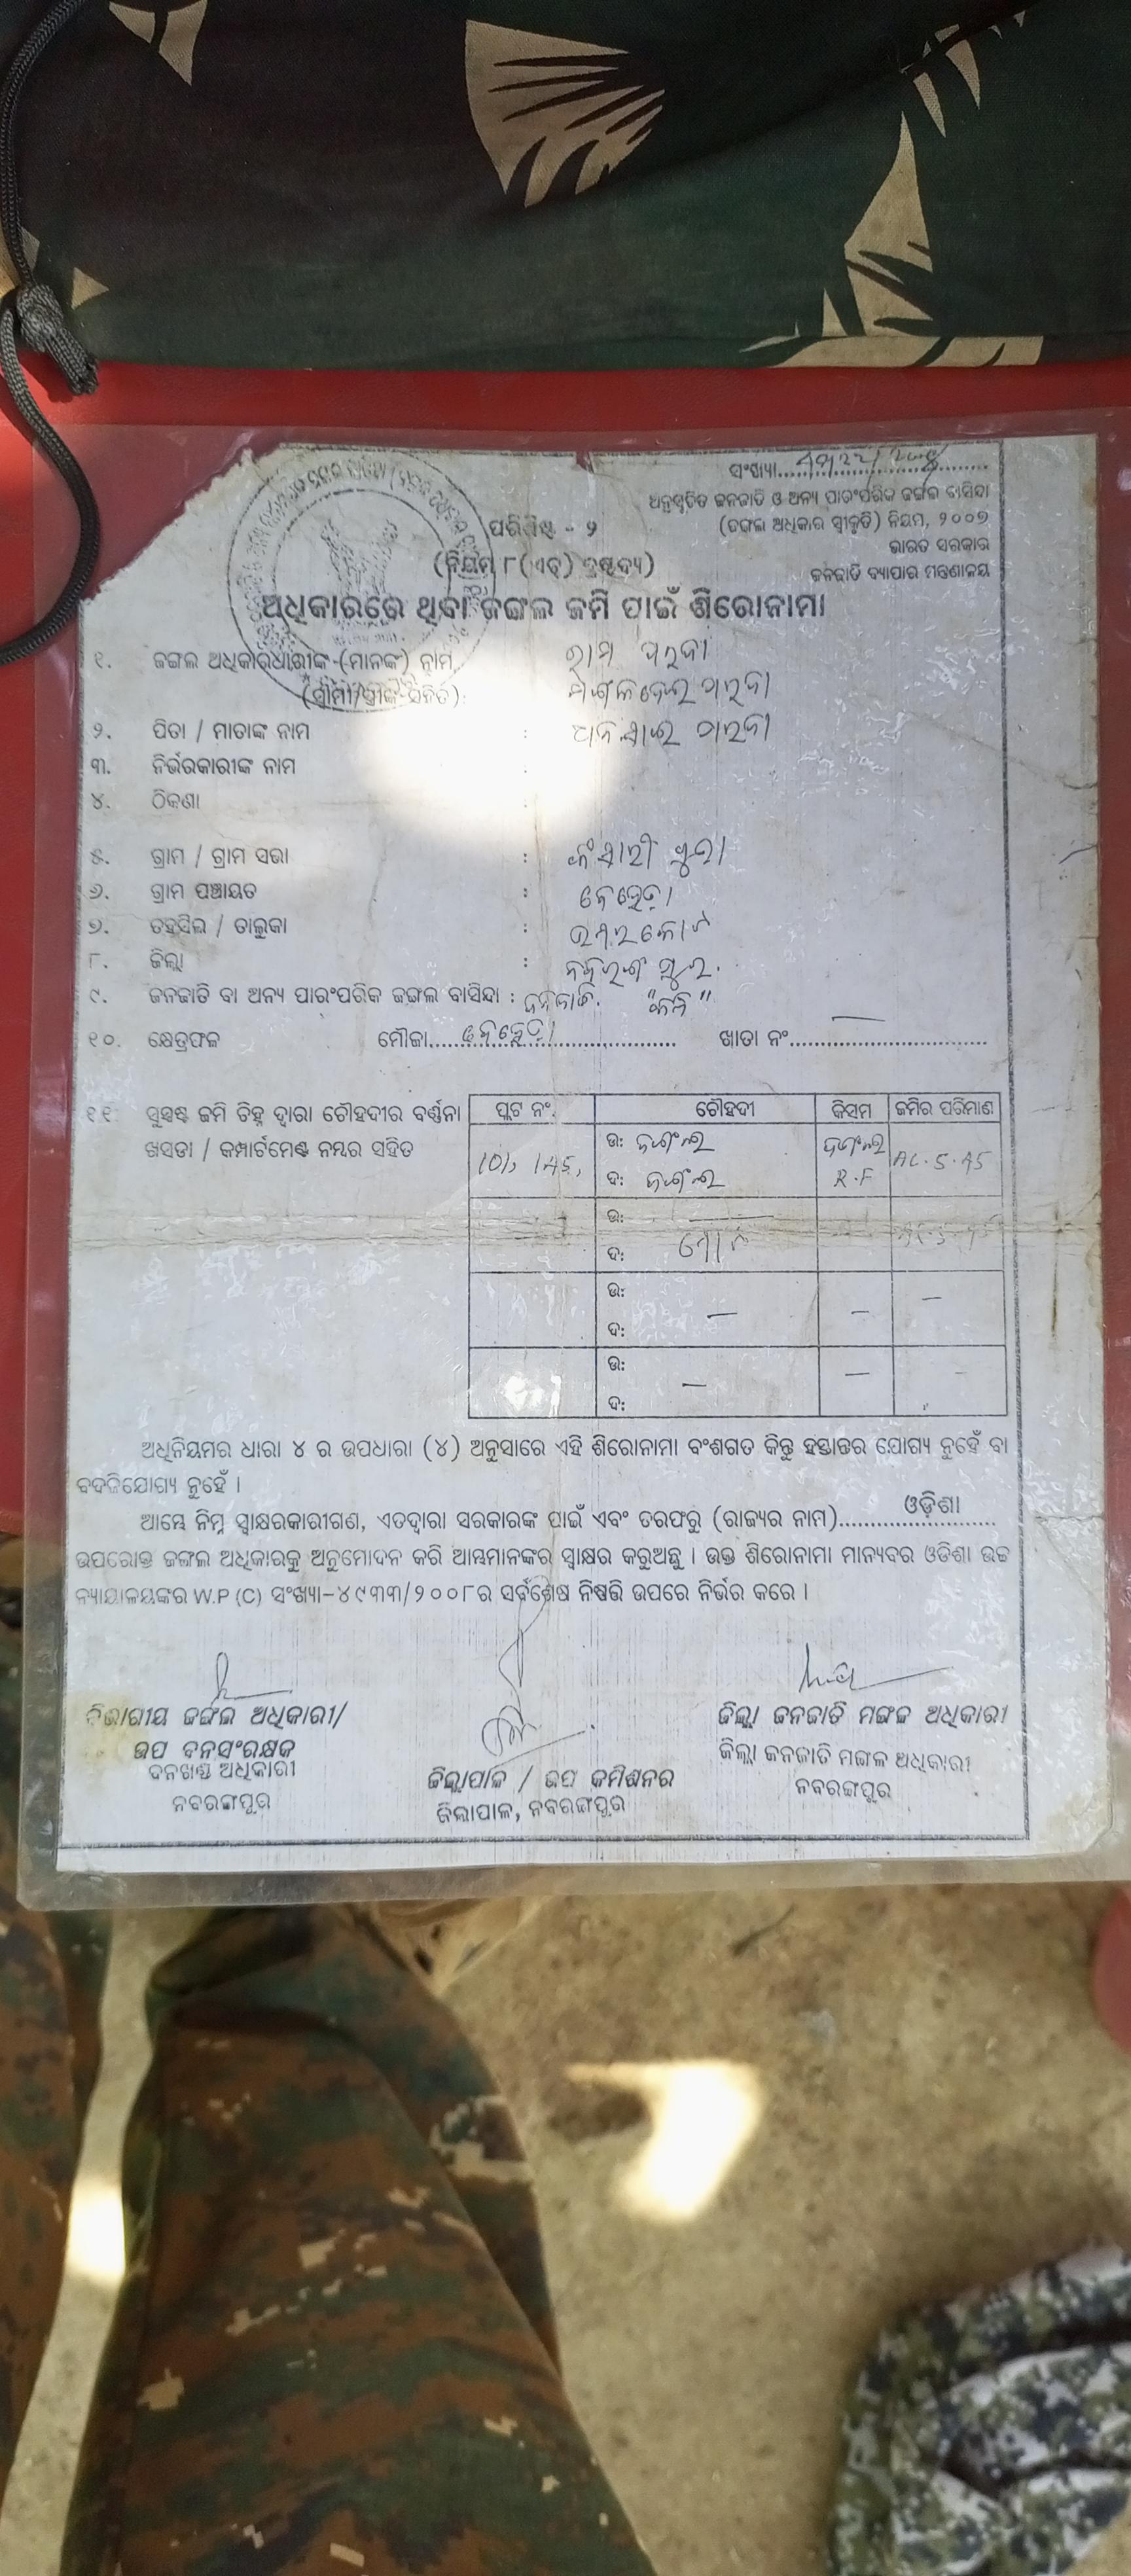 ସଂଖ୍ୟା
ଅନୁସୂଚିତ ଜନଜାତି ଓ ଅନ୍ୟ ପାରଂପରିକ ଜଙ୍ଗଲ ବାସିନ୍ଦା
(ଜଙ୍ଗଲ ଅଧିକାର ସ୍ୱୀକୃତି) ନିୟମ, ୨୦୦୭
ଭାରତ ସରକାର
ଜନଜାତି ବ୍ୟାପାର ମନ୍ତ୍ରଣାଳୟ
ପରିଶିଷ୍ଟ - ୨
(ନିୟମ ୮(ଏଚ୍) ଦ୍ରଷ୍ଟବ୍ୟ)
ଅଧିକାରରେ ଥିବା ଜଙ୍ଗଲ ଜମି ପାଇଁ ଶିରୋନାମା
୧. ଜଙ୍ଗଲ ଅଧିକାରଧାରୀଙ୍କ (ମାନଙ୍କ) ନାମ ରାମ ପରଜା
(ସ୍ୱାମୀ/ସ୍ତ୍ରୀଙ୍କ ସହିତ) ପରଜା
୨. ପିତା / ମାତାଙ୍କ ନାମ : ପରଜା
୩. ନିର୍ଭରକାରୀଙ୍କ ନାମ :
୪. ଠିକଣା :
୫. ଗ୍ରାମ / ଗ୍ରାମ ସଭା :
୬. ଗ୍ରାମ ପଞ୍ଚାୟତ :
୭. ତହସିଲ / ତାଲୁକା : ଉମରକୋଟ
୮. ଜିଲ୍ଲା : ନବରଙ୍ଗପୁର.
୯. ଜନଜାତି ବା ଅନ୍ୟ ପାରଂପରିକ ଜଙ୍ଗଲ ବାସିନ୍ଦା : ଜନଜାତି.
୧୦. କ୍ଷେତ୍ରଫଳ ମୌଜା ଖାତା ନଂ —
୧୧. ସୁସ୍ପଷ୍ଟ ଜମି ଚିହ୍ନ ଦ୍ୱାରା ଚୌହଦୀର ବର୍ଣ୍ଣନା ପ୍ଲଟ ନଂ. ଚୌହଦୀ କିସମ ଜମିର ପରିମାଣ
ଖସଡା / କମ୍ପାର୍ଟମେଣ୍ଟ ନମ୍ବର ସହିତ
ଉ: ଜଙ୍ଗଲ ଜଙ୍ଗଲ
ଦ: ଜଙ୍ଗଲ R.F
ଉ:
ଦ: ମୋଟ
ଉ:
ଦ:
ଉ:
ଦ:
ଅଧିନିୟମର ଧାରା ୪ ର ଉପଧାରା (୪) ଅନୁସାରେ ଏହି ଶିରୋନାମା ବଂଶଗତ କିନ୍ତୁ ହସ୍ତାନ୍ତର ଯୋଗ୍ୟ ନୁହେଁ ବା
ବଦଳିଯୋଗ୍ୟ ନୁହେଁ ।
ଆମ୍ଭେ ନିମ୍ନ ସ୍ୱାକ୍ଷରକାରୀଗଣ, ଏତଦ୍ୱାରା ସରକାରଙ୍କ ପାଇଁ ଏବଂ ତରଫରୁ (ରାଜ୍ୟର ନାମ) ଓଡ଼ିଶା
ଉପରୋକ୍ତ ଜଙ୍ଗଲ ଅଧିକାରକୁ ଅନୁମୋଦନ କରି ଆମ୍ଭମାନଙ୍କର ସ୍ୱାକ୍ଷର କରୁଅଛୁ । ଉକ୍ତ ଶିରୋନାମା ମାନ୍ୟବର ଓଡିଶା ଉଚ୍ଚ
ନ୍ୟାୟାଳୟଙ୍କର W.P (C) ସଂଖ୍ୟା-୪୯୩୩/୨୦୦୮ର ସର୍ବଶେଷ ନିଷ୍ପତ୍ତି ଉପରେ ନିର୍ଭର କରେ ।
ବିଭାଗୀୟ ଜଙ୍ଗଲ ଅଧିକାରୀ/
ଉପ ବନସଂରକ୍ଷକ
ବନଖଣ୍ଡ ଅଧିକାରୀ
ନବରଙ୍ଗପୁର
ଜିଲ୍ଲାପାଳ / ଉପ କମିଶନର
ଜିଲାପାଳ, ନବରଙ୍ଗପୁର
ଜିଲ୍ଲା ଜନଜାତି ମଙ୍ଗଳ ଅଧିକାରୀ
ଜିଲ୍ଲା ଜନଜାତି ମଙ୍ଗଳ ଅଧିକାରୀ
ନବରଙ୍ଗପୁର